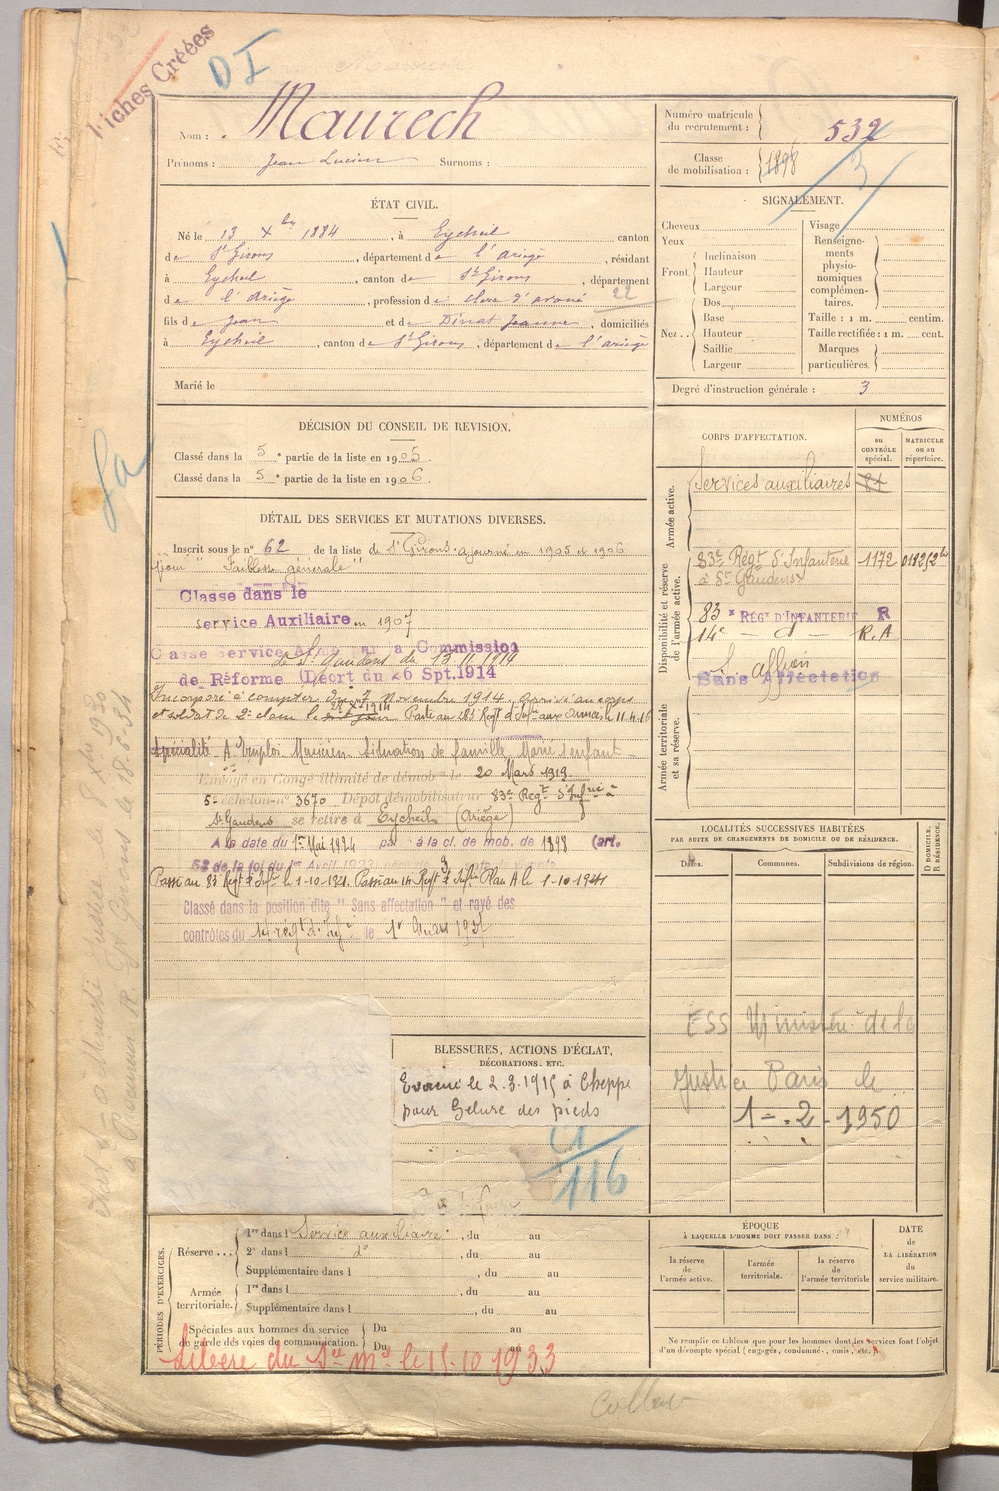 Fiches Créées
DI
Nom : Maurech
Prénoms : Jean Lucien Surnoms :
Numéro matricule du recrutement : 532
Classe de mobilisation : 1898
3
ÉTAT CIVIL.
Né le 13 Xbre 1884, à Eycheil canton
de St Girons, département de l'ariège, résidant
à Eycheil canton de St Girons, département
de l'ariège, profession de clerc d'avoué
22
fils de Jean et de Dinat Jeanne, domiciliés
à Eycheil, canton de St Girons, département de l'ariège
Marié le
SIGNALEMENT.
Cheveux
Yeux
Front. Inclinaison
Hauteur
Largeur
Nez.. Dos
Base
Hauteur
Saillie
Largeur
Visage
Renseigne-
ments
physio-
nomiques
complémen-
taires.
Taille : 1 m. centim.
Taille rectifiée : 1 m. cent.
Marques
particulières.
Degré d'instruction générale : 3
DÉCISION DU CONSEIL DE REVISION.
Classé dans la 5e partie de la liste en 1905.
Classé dans la 5e partie de la liste en 1906.
DÉTAIL DES SERVICES ET MUTATIONS DIVERSES.
Inscrit sous le n° 62 de la liste de St Girons. ajourné en 1905 et 1906
pour "Faiblesse générale"
Classé dans le
service Auxiliaire en 1907
Classé Service Armé par la Commission
de St Gaudens du 13.11.1914
de Réforme (Décrt du 26 Spt. 1914
Incorporé à compter du 7 Novembre 1914. arrivé au corps
et soldat de 2e classe le
Parti au 283 Regt d'Infie aux Armées le 11.4.16
Spécialité A Emploi Musicien. Situation de famille Marié 1 enfant
Envoyé en Congé illimité de démobon le 20 Mars 1919
5e échelon n° 3670 Dépôt démobilisateur 83e Regt d'Infrie à
St Gaudens se retire à Eycheil (Ariège)
A la date du 1er Mai 1924 à la cl. de mob. de 1898 (art.
58 de la loi du 1er Avril 1923
Passé au 83 Regt d'Infie le 1-10-1921. Passé au 14 Regt d'Infie Plan A le 1-10-1924
Classé dans la position dite "Sans affectation" et rayé des
contrôles du 14 régt d'Infie le 1er
CORPS D'AFFECTATION.
NUMÉROS
AU CONTRÔLE spécial.
MATRICULE OU AU répertoire.
Armée active.
Services auxiliaires
Disponibilité et réserve de l'armée active.
83e Régt d'Infanterie 1172
à St Gaudens
83e RÉGt D'INFANTERIE R
14e — d — R.A
Sans Affectation
Armée territoriale et sa réserve.
LOCALITÉS SUCCESSIVES HABITÉES
PAR SUITE DE CHANGEMENTS DE DOMICILE OU DE RÉSIDENCE.
Dates.
Communes.
Subdivisions de région.
D DOMICILE.
R RÉSIDENCE.
ESS Ministère de la
Justice Paris le
1-.2-1950
BLESSURES, ACTIONS D'ÉCLAT,
DÉCORATIONS. ETC.
Evacué le 2.3.1915 à Cheppe
pour Gelure des pieds
116
PÉRIODES D'EXERCICES.
Réserve... 1re dans l Service auxiliaire, du au
2e dans l do, du au
Supplémentaire dans l, du au
Armée territoriale. 1re dans l, du au
Supplémentaire dans l, du au
Spéciales aux hommes du service de garde des voies de communication. Du au
Du au
Libéré du Sce Mre le 15.10 1933
ÉPOQUE
À LAQUELLE L'HOMME DOIT PASSER DANS :
la réserve de l'armée active.
l'armée territoriale.
la réserve de l'armée territoriale
DATE
DE LA LIBÉRATION
du
service militaire.
Ne remplir ce tableau que pour les hommes dont les services font l'objet
d'un décompte spécial (engagés, condamnés, omis, etc.)